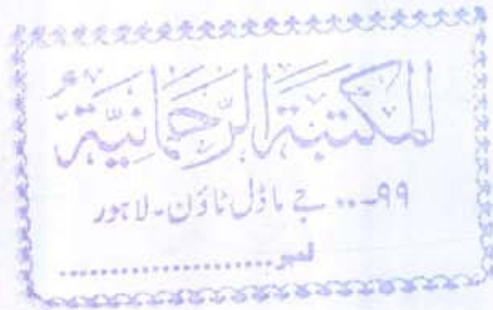 المکتبۃ الرّحمانیّۃ
۹۹... جے ماڈل ٹاؤن۔ لاہور
نمبر....................